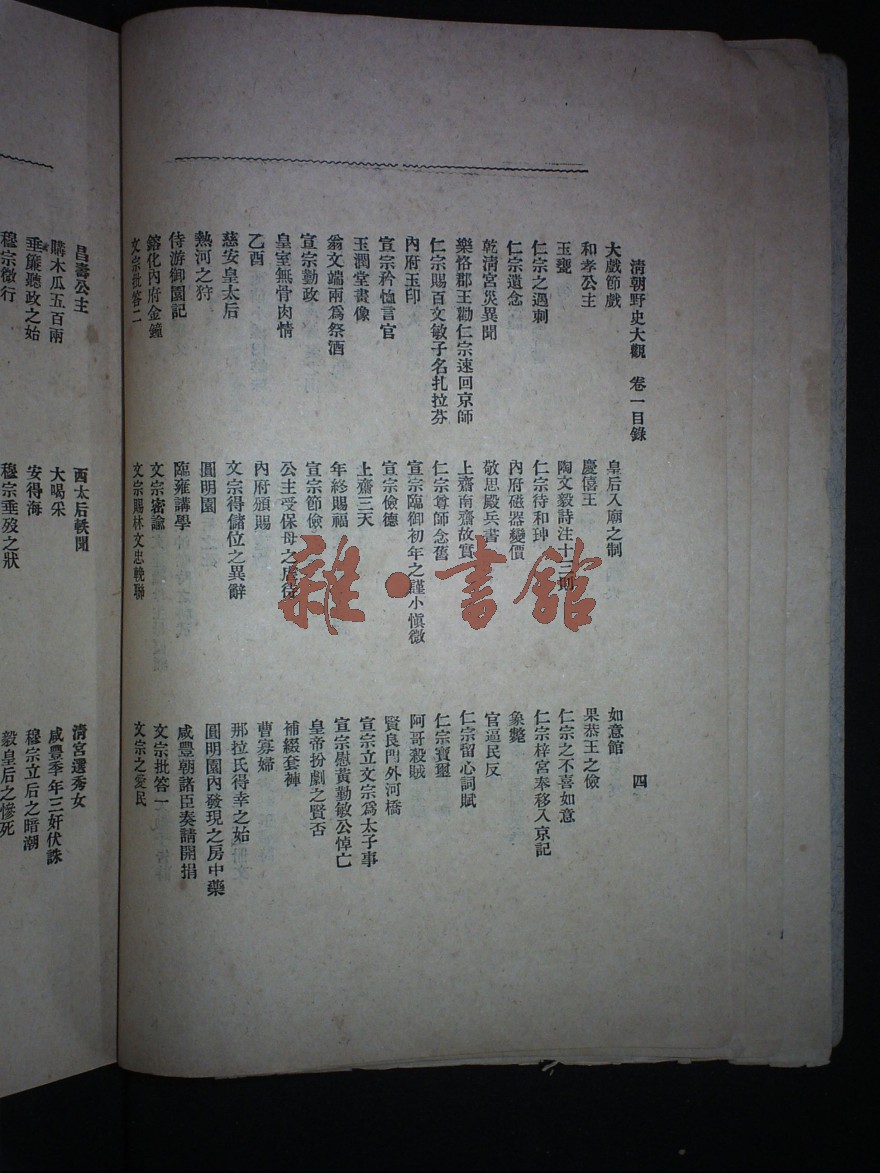 清朝野史大觀 卷一目錄 四
大戲節戲 皇后入廟之制 如意館
和孝公主 慶僖王 果恭王之儉
玉甕 陶文毅詩注十三則 仁宗之不喜如意
仁宗之遇刺 仁宗待和珅 仁宗梓宮奉移入京記
仁宗遺念 內府磁器變價 象斃
乾清宮災異聞 敬思殿兵書 官逼民反
樂恪郡王勸仁宗速回京師 上齋南齋故實 仁宗留心詞賦
仁宗賜百文敏子名扎拉芬 仁宗尊師念舊 仁宗寶璽
內府玉印 宣宗臨御初年之謹小愼微 阿哥殺賊
宣宗矜恤言官 宣宗儉德 賢良門外河橋
玉潤堂畫像 上齋三天 宣宗立文宗爲太子事
翁文端兩爲祭酒 年終賜福 宣宗慰黃勤敏公悼亡
宣宗勤政 宣宗節儉 皇帝扮劇之賢否
皇室無骨肉情 公主受保母之虐待 補綴套褲
乙酉 內府頒賜 曹寡婦
慈安皇太后 文宗得儲位之異辭 那拉氏得幸之始
熱河之狩 圓明園 圓明園內發現之房中藥
侍游御園記 臨雍講學 咸豐朝諸臣奏請開捐
鎔化內府金鐘 文宗密諭 文宗批答一
文宗批答二 文宗賜林文忠輓聯 文宗之愛民
昌壽公主 西太后軼聞 清宮選秀女
購木瓜五百兩 大喝采 咸豐季年三奸伏誅
垂簾聽政之始 安得海 穆宗立后之暗潮
穆宗微行 穆宗垂歿之狀 毅皇后之慘死
雜·書館